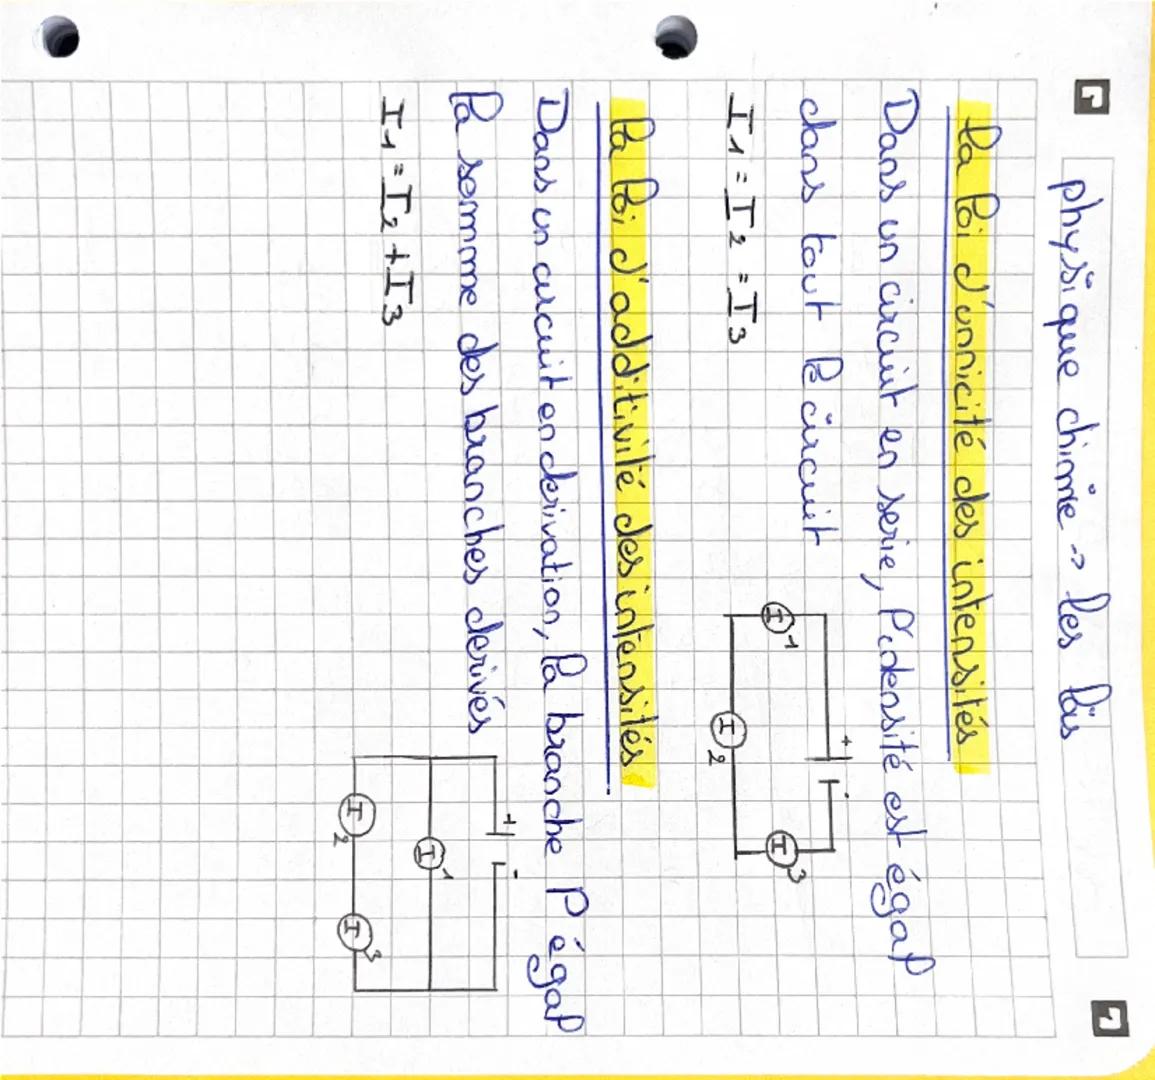 physique chimie -> les lois
La loi d'unnicité des intensités
Dans un circuit en serie, l'idensité est égal
dans tout le circuit
I1 = I2 = I3
+ -
I 1
I 2
I 3
La loi d'additivité des intensités
Dans un circuit en derivation, la branche P égal
la somme des branches derivés
I1 = I2 + I3
+ -
I 1
I 2
I 3